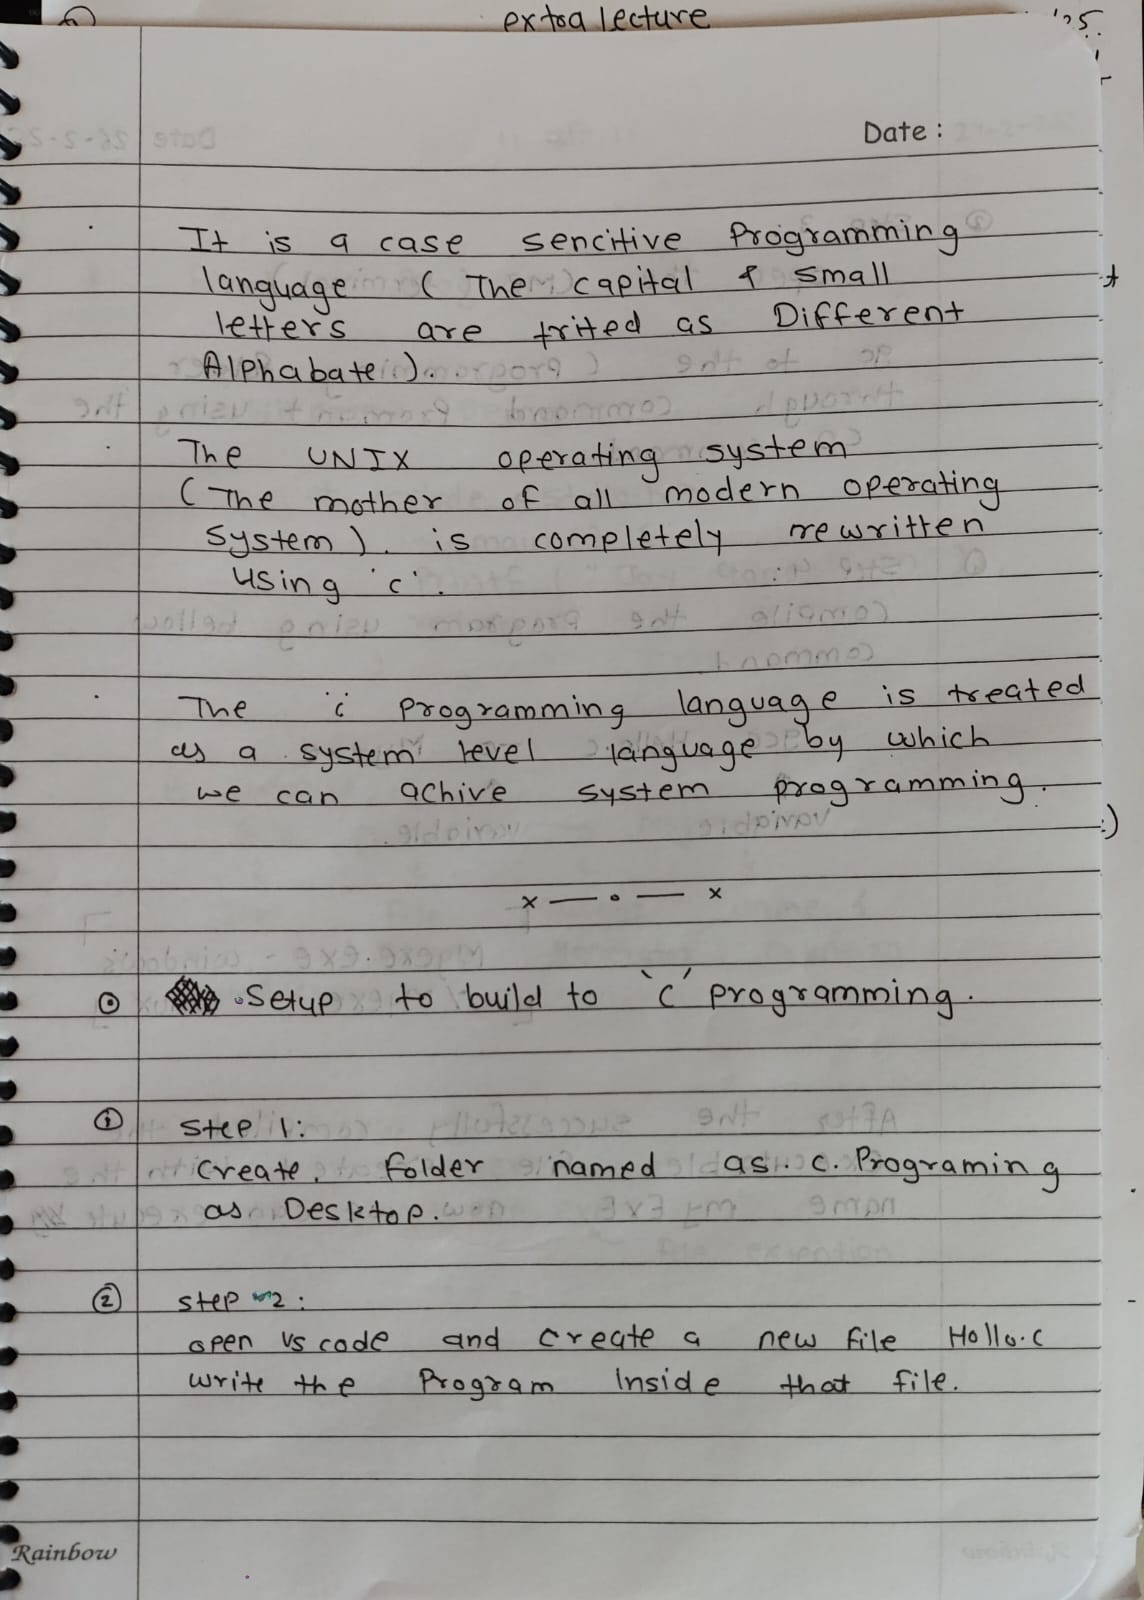 extra lecture
Date :
It is a case sencitive Programming
language ( The capital & small
letters are trited as Different
Alphabate ).
The UNIX operating system
( The mother of all modern operating
system ). is completely rewritten
using 'c'.
The 'c programming language is treated
as a system level language by which
we can achive system programming.
x — o — x
Setup to build to 'c' programming.
① step 1:
create. folder named as. c. Programing
as Desktop.
② step 2 :
open vs code and create a new file Hollo.c
write the Program Inside that file.
Rainbow